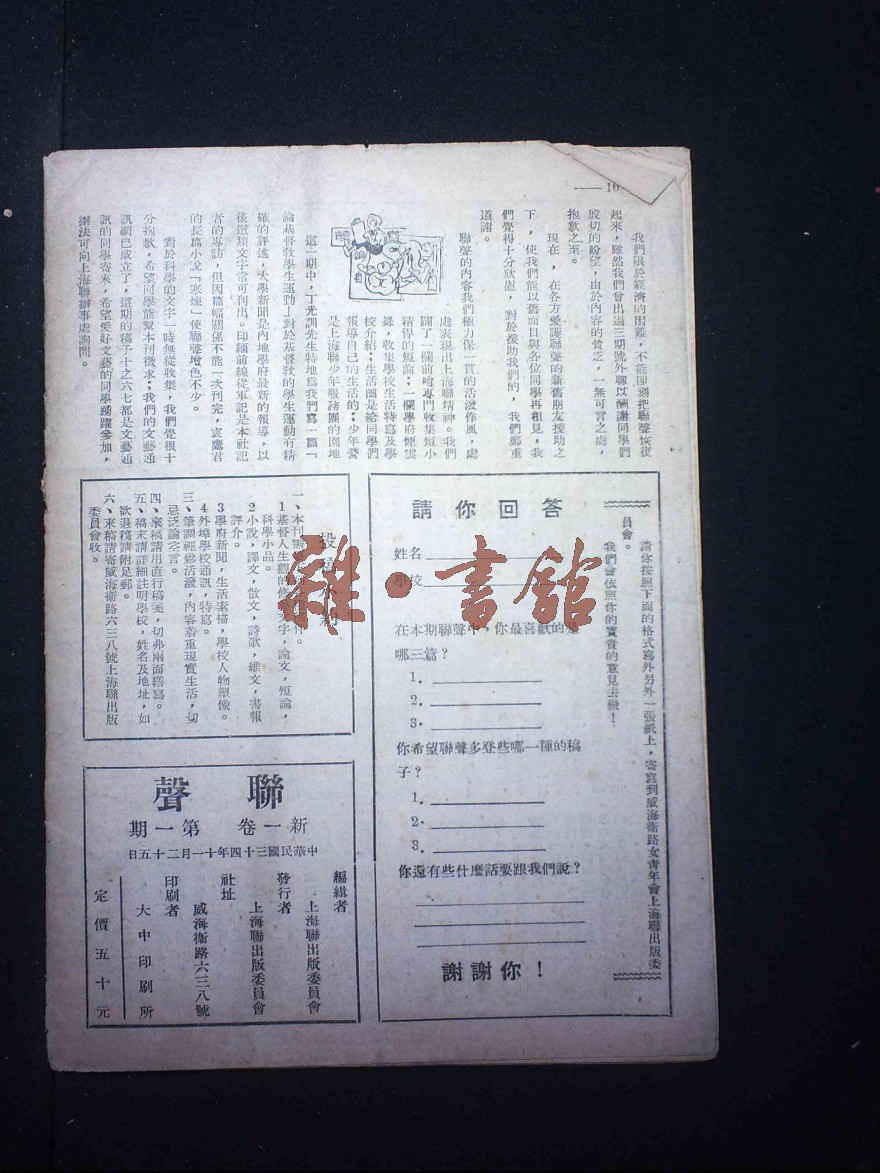 — 16
我們限於經濟的困難，不能即刻把聯聲恢復
起來，雖然我們曾出過三期號外聊以酬謝同學們
殷切的盼望，由於內容的貧乏，一無可言之處，
抱歉之至。
現在，在各方愛護聯聲的新舊朋友援助之
下，使我們能以舊面目與各位同學再相見，我
們覺得十分欣慰，對於援助我們的，我們鄭重
道謝。
聯聲的內容我們極力保一貫的活潑作風，處
處表現出上海聯精神。我們
闢了一欄前哨專門收集短小
精悍的短論；一欄學府煙雲
錄，收集學校生活特寫及學
校介紹；生活圈是給同學們
報導自己的生活的；少年營
是上海聯少年服務團的園地
這一期中，丁光訓先生特地為我們寫一篇「
論基督教學生運動」對於基督教的學生運動有精
確的評述，大學新聞是內地學府最新的報導，以
後這類文字當可刊出。印緬前線從軍記是本社記
者的專訪，但因篇幅關係不能一次刊完，袁鷹君
的長篇小說「寒煉」使聯聲增色不少。
對於科學的文字一時無從收集，我們覺很十
分抱歉，希望同學能幫本刊徵求；我們的文藝通
訊網已成立了，這期的稿子十之六七都是文藝通
訊的同學寄來，希望愛好文藝的同學踴躍參加，
辦法可向上海聯辦事處詢問。
請你按照下面的格式寫外另外一張紙上，寄寫到威海衛路女青年會上海聯出版委
員會。
我們會依照你的寶貴的意見去做！
請你回答
姓名
學校
在本期聯聲中，你最喜歡的是
哪三篇？
1.
2.
3.
你希望聯聲多登些哪一種的稿
子？
1.
2.
3.
你還有些什麼話要跟我們說？
謝謝你！
投
一、本刊
1基督人生觀的修養文字，論文，短論，
科學小品。
2小說，譯文，散文，詩歌，雜文，書報
評介。
3學府新聞，生活素描，學校人物塑像。
4外埠學校通訊，特寫。
三、筆調輕鬆活潑，內容着重現實生活，切
忌泛論空言。
四、來稿請用直行稿箋，切弗兩面繕寫。
五、稿末請詳細註明學校，姓名及地址，如
欲退稿請附足郵。
六、來稿請寄威海衛路六三八號上海聯出版
委員會收。
聯聲
新一卷 第一期
中華民國三十四年十一月二十五日
編緝者
上海聯出版委員會
發行者
上海聯出版委員會
社址
威海衛路六三八號
印刷者
大中印刷所
定價五十元
雜·書館